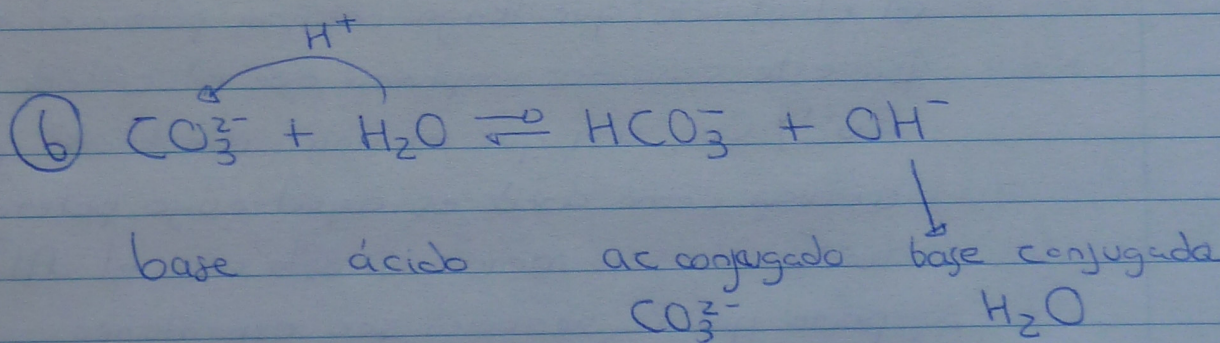 H⁺
(b) CO₃²⁻ + H₂O ⇌ HCO₃⁻ + OH⁻
base ácido ac conjugado base conjugada
CO₃²⁻ H₂O